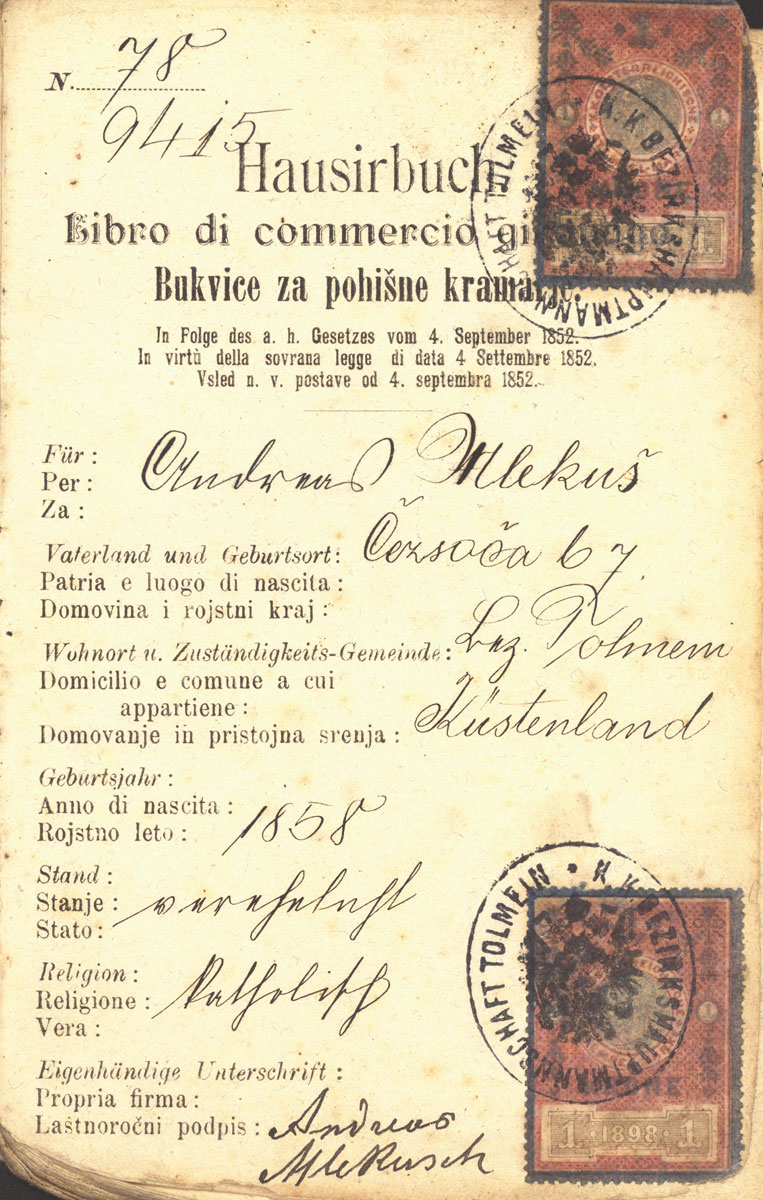 N. 78
9415
Hausirbuch
Libro di commercio
Bukvice za pohišne kramarje.
In Folge des a. h. Gesetzes vom 4. September 1852.
In virtù della sovrana legge di data 4 Settembre 1852.
Vsled n. v. postave od 4. septembra 1852.
Für:
Per: Andreas Mlekuš
Za:
Vaterland und Geburtsort: Čezsoča 67
Patria e luogo di nascita:
Domovina i rojstni kraj:
Wohnort u. Zuständigkeits-Gemeinde: Bez. Tolmein
Domicilio e comune a cui
appartiene: Küstenland
Domovanje in pristojna srenja:
Geburtsjahr:
Anno di nascita: 1858
Rojstno leto:
Stand:
Stanje: verehelicht
Stato:
Religion:
Religione: katholisch
Vera:
Eigenhändige Unterschrift:
Propria firma:
Lastnoročni podpis: Andreas
Mlekusch
K. K. BEZIRKSHAUPTMANNSCHAFT TOLMEIN
1
1 1
K. K. BEZIRKSHAUPTMANNSCHAFT TOLMEIN
1 1898 1